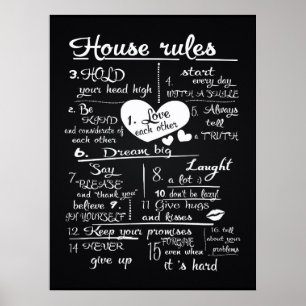 House rules
3. HOLD
your head high
4. start
every day
WITH A SMILE
2. Be
KIND
and considerate of
each other
1. Love
each other
5. Always
tell
a TRUTH
6. Dream big
7 Say
"PLEASE"
and "thank you"
Laugh
8 a lot :)
10 don't be lazy!
believe 9.
IN YOURSELF
11 Give hugs
and kisses
12. Keep your promises
14 NEVER
give up
15 FORGIVE
even when
it's hard
16. tell
about your
problems